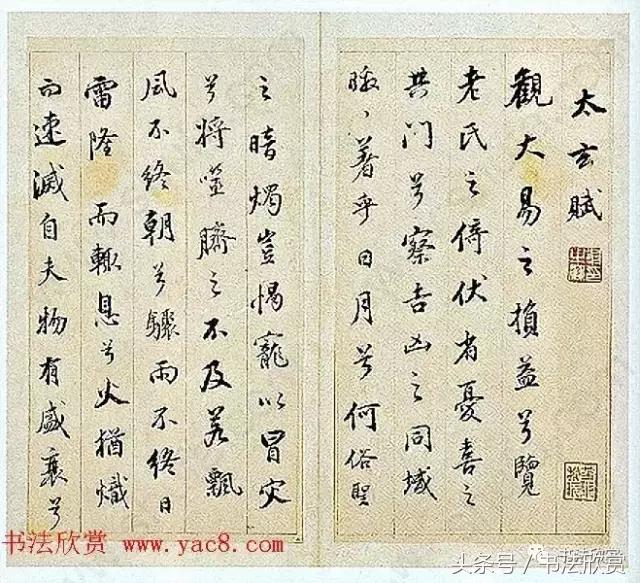 太玄賦
觀大易之損益兮覽
老氏之倚伏省憂喜之
共門兮察吉凶之同域
皦〻著乎日月兮何俗聖
之暗燭豈愒寵以冒灾
兮將噬臍之不及若飄
風不終朝兮驟雨不終日
雷隆〻而輒息兮火猶熾
而速滅自夫物有盛衰兮
书法欣赏 www.yac8.com
头条号/书法欣赏